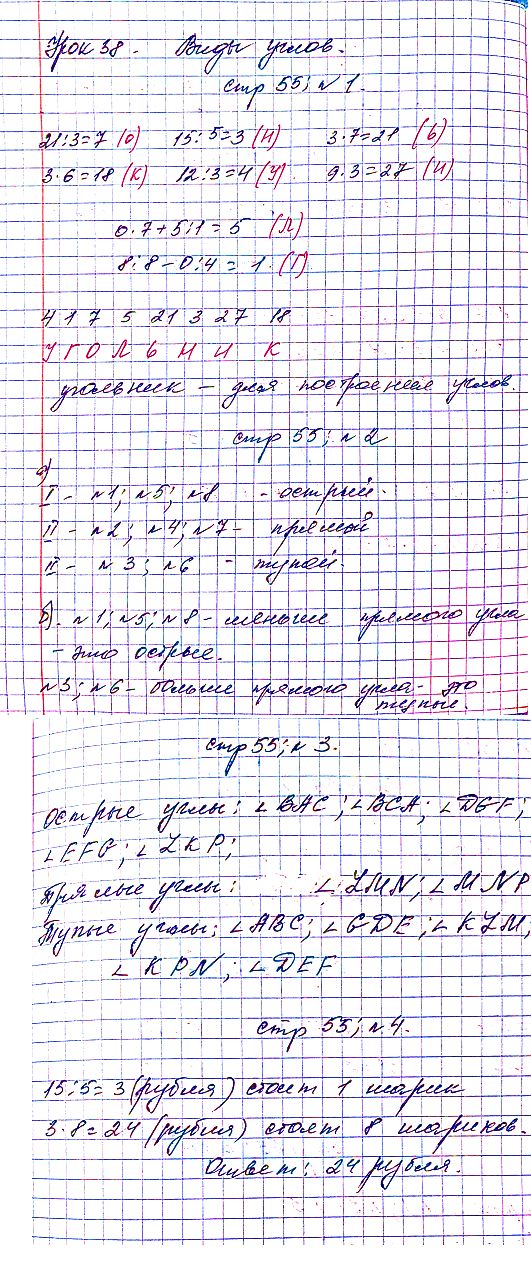 Урок 38. Виды углов.
стр 55; №1.
21:3=7 (О) 15:5=3 (Н) 3·7=21 (Ь)
3·6=18 (К) 12:3=4 (У) 9·3=27 (И)
0·7+5:1=5 (Л)
8:8-0:4=1. (Г)
4 1 7 5 21 3 27 18
У Г О Л Ь Н И К
угольник – для построения углов.
стр 55; №2
а)
I – №1; №5; №8 - острый.
II – №2; №4; №7 – прямой
II – №3; №6 - тупой.
б). №1; №5; №8 – меньше прямого угла
– это острые.
№3; №6 – больше прямого угла - это
тупые.
стр 55; №3.
Острые углы: ∠BAC; ∠BCA; ∠DGF;
∠EFG; ∠LKP;
Прямые углы: ∠LMN; ∠MNP
Тупые углы: ∠ABC; ∠GDE; ∠KLM;
∠KPN; ∠DEF
стр 55; №4.
15:5=3 (рубля) стоит 1 шарик
3·8=24 (рубля) стоят 8 шариков.
Ответ: 24 рубля.